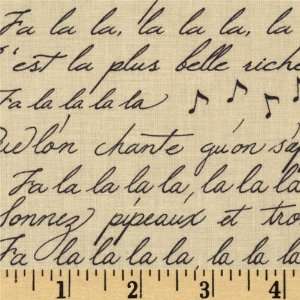 Fa la la, la la la, la
C'est la plus belle riche
Fa la la la la
Qu'lon chante qu'on s'ép
Fa la la la la, la la la
Sonnez pipeaux et tro
Fa la la la la la la la
1 2 3 4